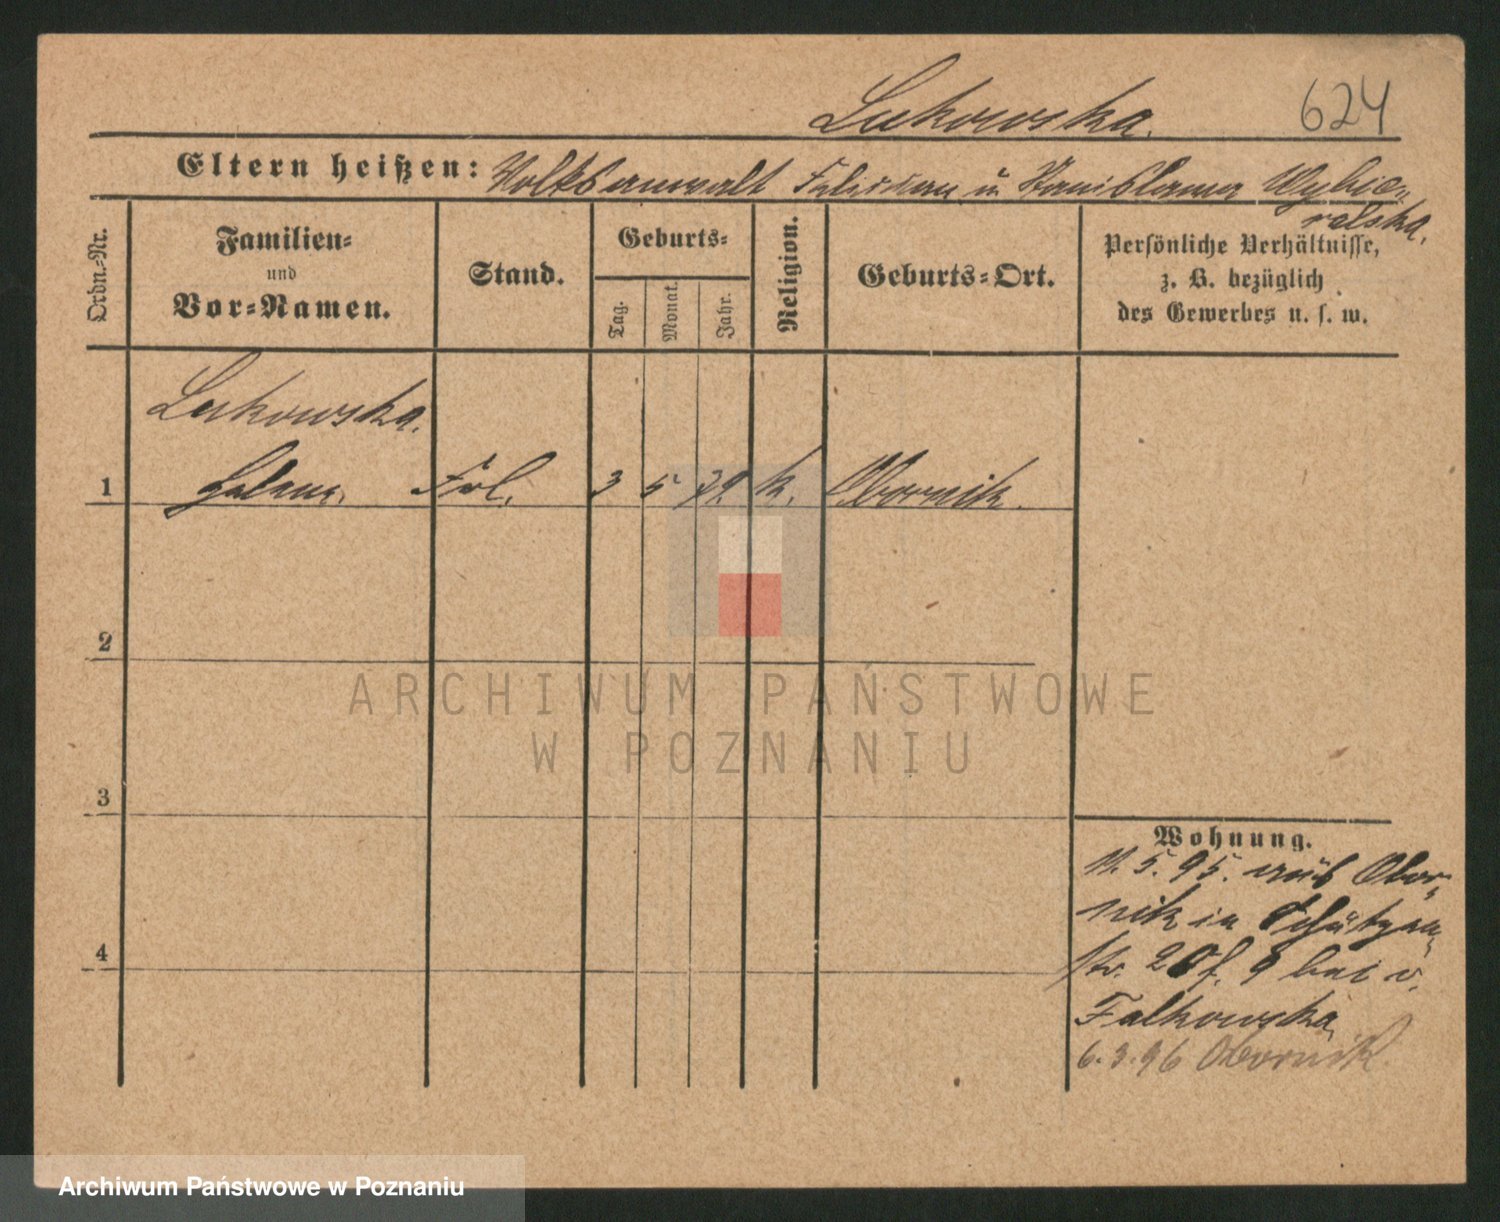 Lukowska.
624
Eltern heißen: Volksanwalt Felician u Stanislawa Wybie=
ralska.
Ordn.=Nr.
Familien=
und
Vor=Namen.
Stand.
Geburts=
Tag.
Monat.
Jahr.
Religion.
Geburts=Ort.
Persönliche Verhältnisse,
z. B. bezüglich
des Gewerbes u. s. w.
Lukowska.
1 Helene. Frl. 3 5 79. k. Obornik.
2
3
4
Wohnung.
11. 5. 95. aus Obor=
nik in Schützen=
str. 20 f. 9 bei v.
Falkowska
6.3.96 Obornik.
ARCHIWUM PAŃSTWOWE
W POZNANIU
Archiwum Państwowe w Poznaniu